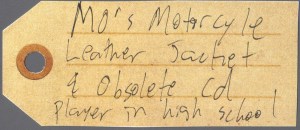 Mo's Motorcycle
Leather Jacket
& Obsolete Cd
player in high school